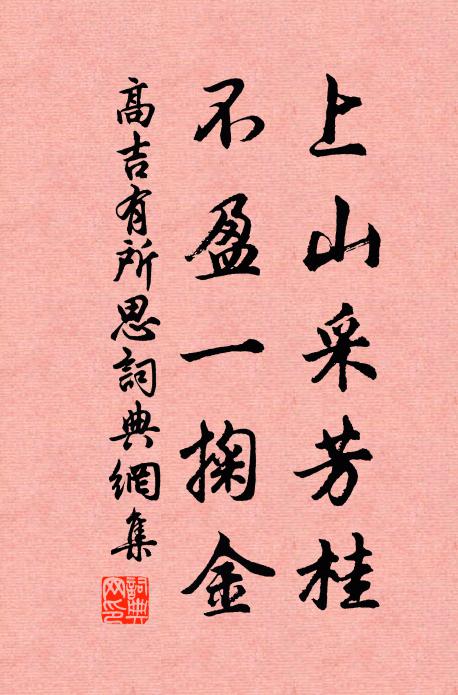 上山采芳桂
不盈一掬金
高吉有所思詞典網集
詞典网印